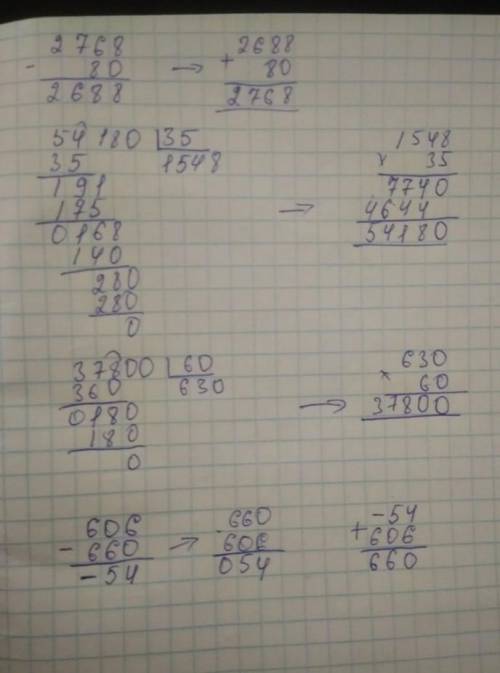 2768 → 2688
- 80 + 80
2688 2768
54180 | 35 1548
35 1548 × 35
191 → 7740
175 4644
0168 54180
140
280
280
0
37800 | 60 630
360 630 × 60
0180 → 37800
180
0
606 → 660 -54
- 660 - 606 + 606
-54 054 660